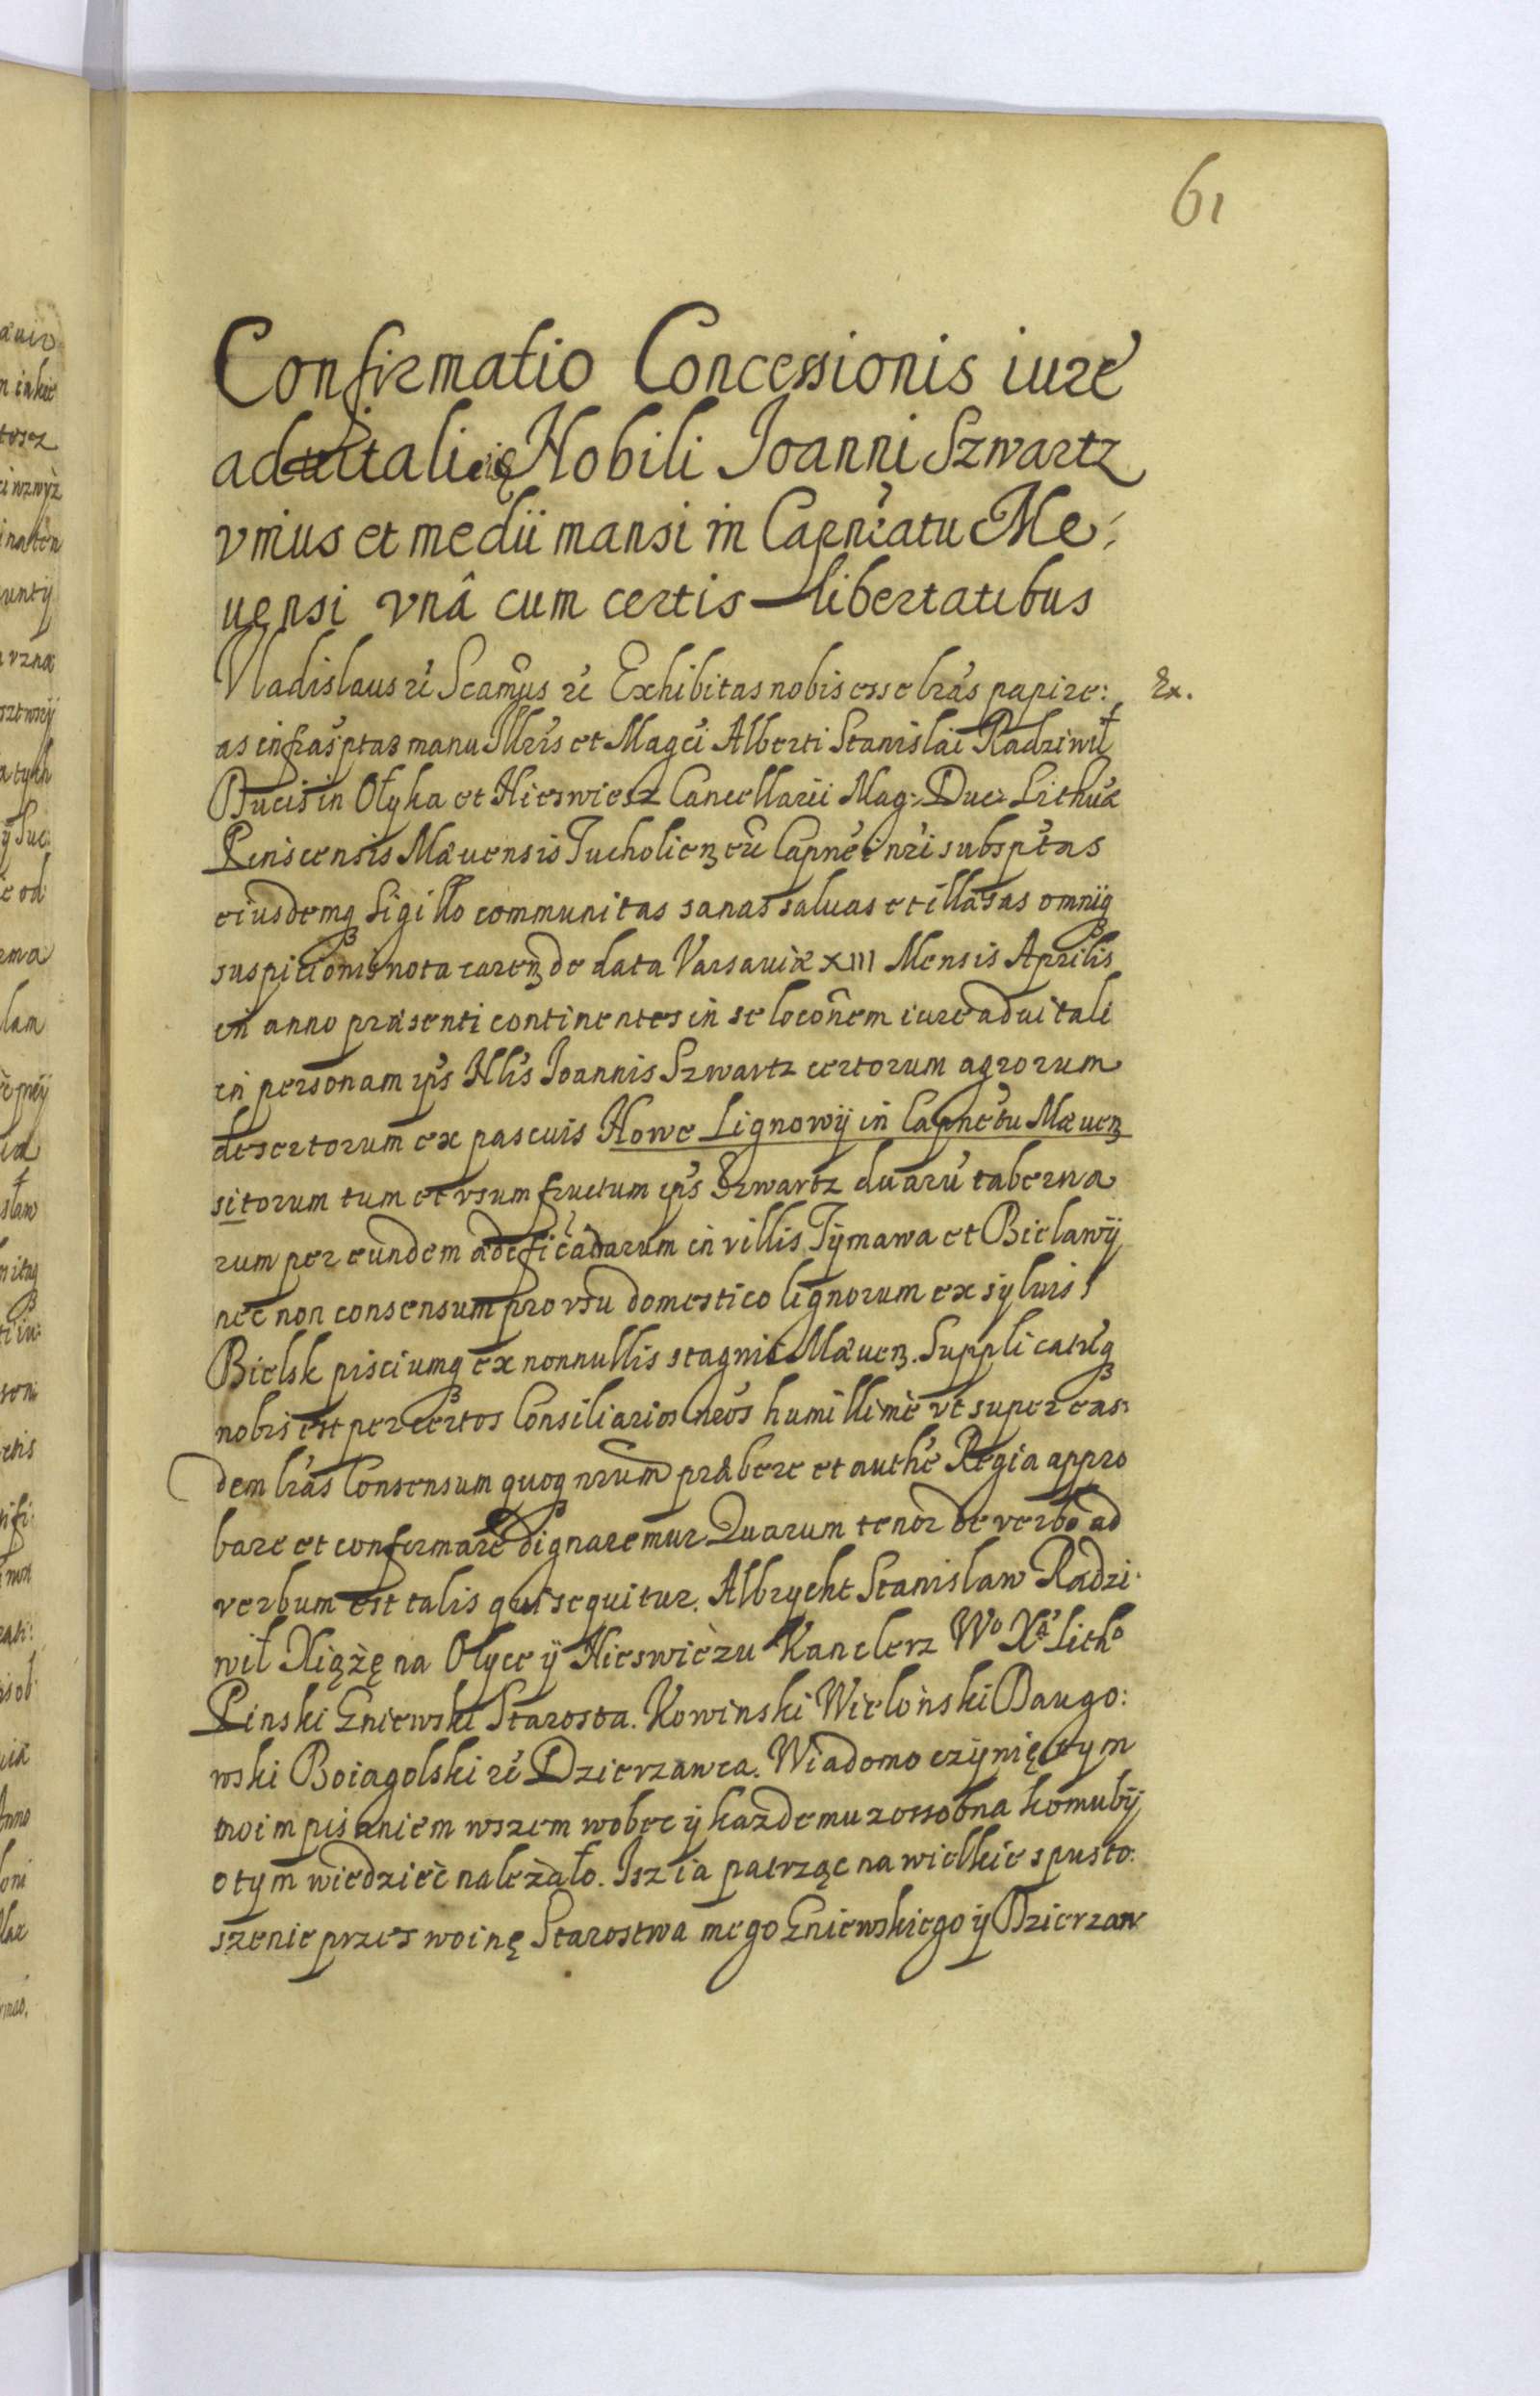 61
Confirmatio Concessionis iure
aduitali Nobili Joanni Szwartz
vnius et medii mansi in Capneatu Me:
uensi vnâ cum certis libertatibus
Vladislaus rẽ Seamus rẽ Exhibitas nobis esse lrás papire: Ex.
as infrasptas manu Illris et Magci Alberti Stanislai Radziwił
Ducis in Ołyka et Nieswiesz Cancellarii Mag: Duc: Lithuæ
Pinscensis Mæuensis Tucholien etc Capnei nri subsptas
eiusdemq Sigillo communitas sanas saluas et illæsas omniq
suspitionis nota caren de data Varsauiæ XIII Mensis Aprilis
in anno præsenti continentes in se locõnem iure aduitali
in personam ips Nlis Joannis Szwartz certorum agrorum
desertorum ex pascuis Nowe Lignowÿ in Capnetu Mæuen
sitorum tum et vsum fructum ips Szwartz duarũ taberna
rum per eundem ædificadarum in villis Tÿmawa et Bielawÿ
nec non consensum pro vsu domestico lignorum ex sylvis
Bielsk pisciumq ex nonnullis stagnis Mæuen. Supplicatuq
nobis est per certos Consiliarios nros humillimè vt super eas:
dem lrás Consensum quoq nrum præbere et authe Regia appro
bare et confirmare dignaremur Quarum tenor de verbo ad
verbum est talis qui sequitur. Albrycht Stanislaw Radzi:
wił Xiążę na Ołyce ÿ Nieswieżu Kanclerz Wo Xa Litho
Pinski Gniewski Starosta. Kowinski Wieloński Daugo:
wski Boiagolski rẽ Dzierzawca. Wiadomo czÿnię tym
moim pisaniem wszem wobec ÿ każdemu zossobna komubÿ
o tym wiedzieć należało. Isz ia patrząc na wielkie spusto:
szenie przes woinę Starostwa mego Gniewskiego ÿ Dzierzaw